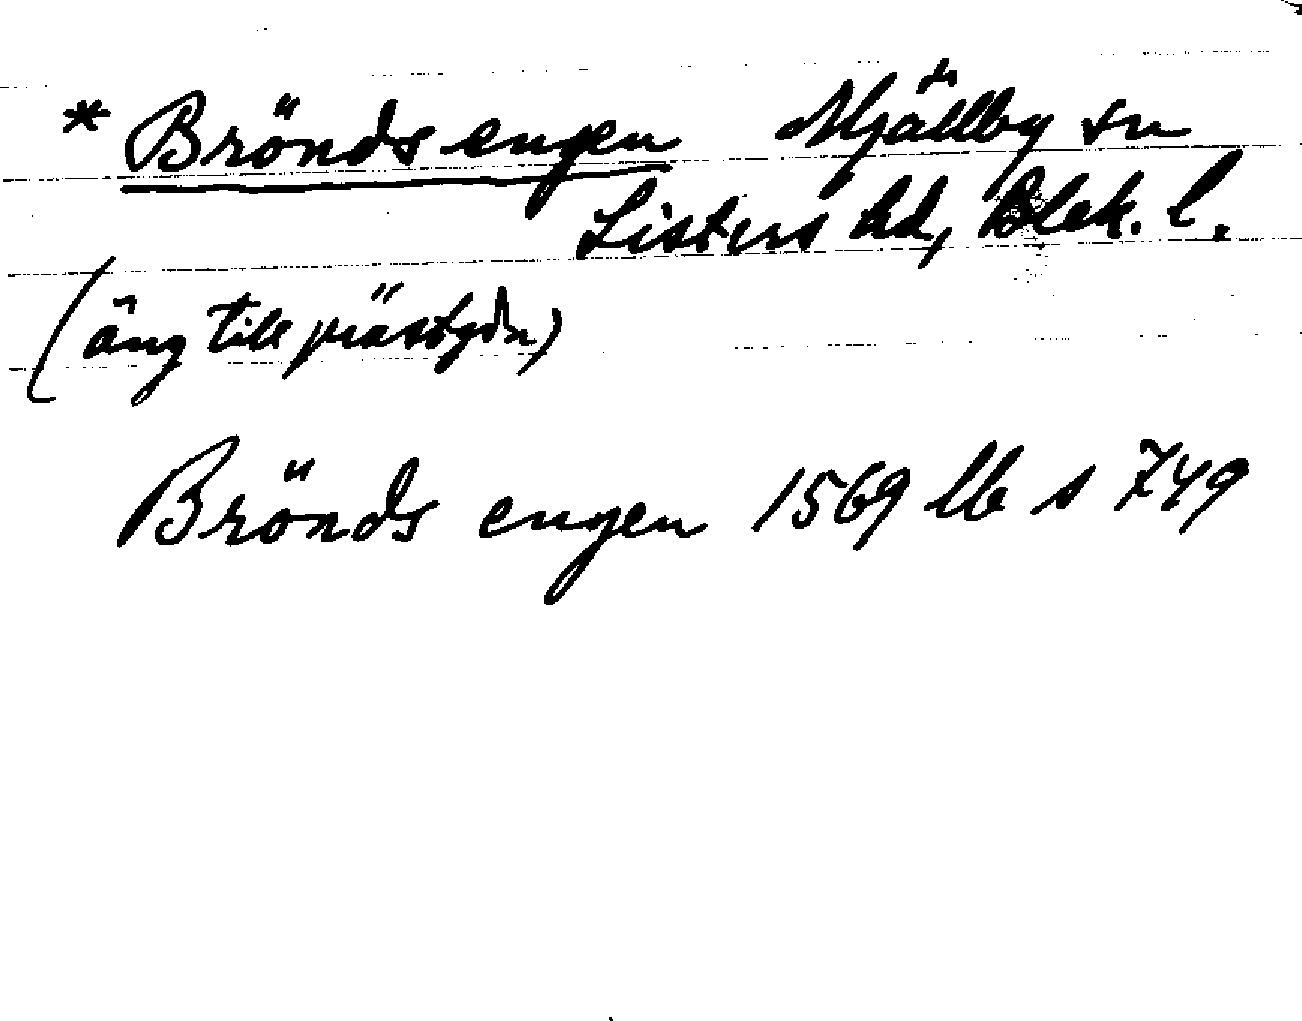 * Bröndsengen Mjällby sn
Listers hd, Blek. l.
(äng till prästgdn)
Brönds engen 1569 lb s 749